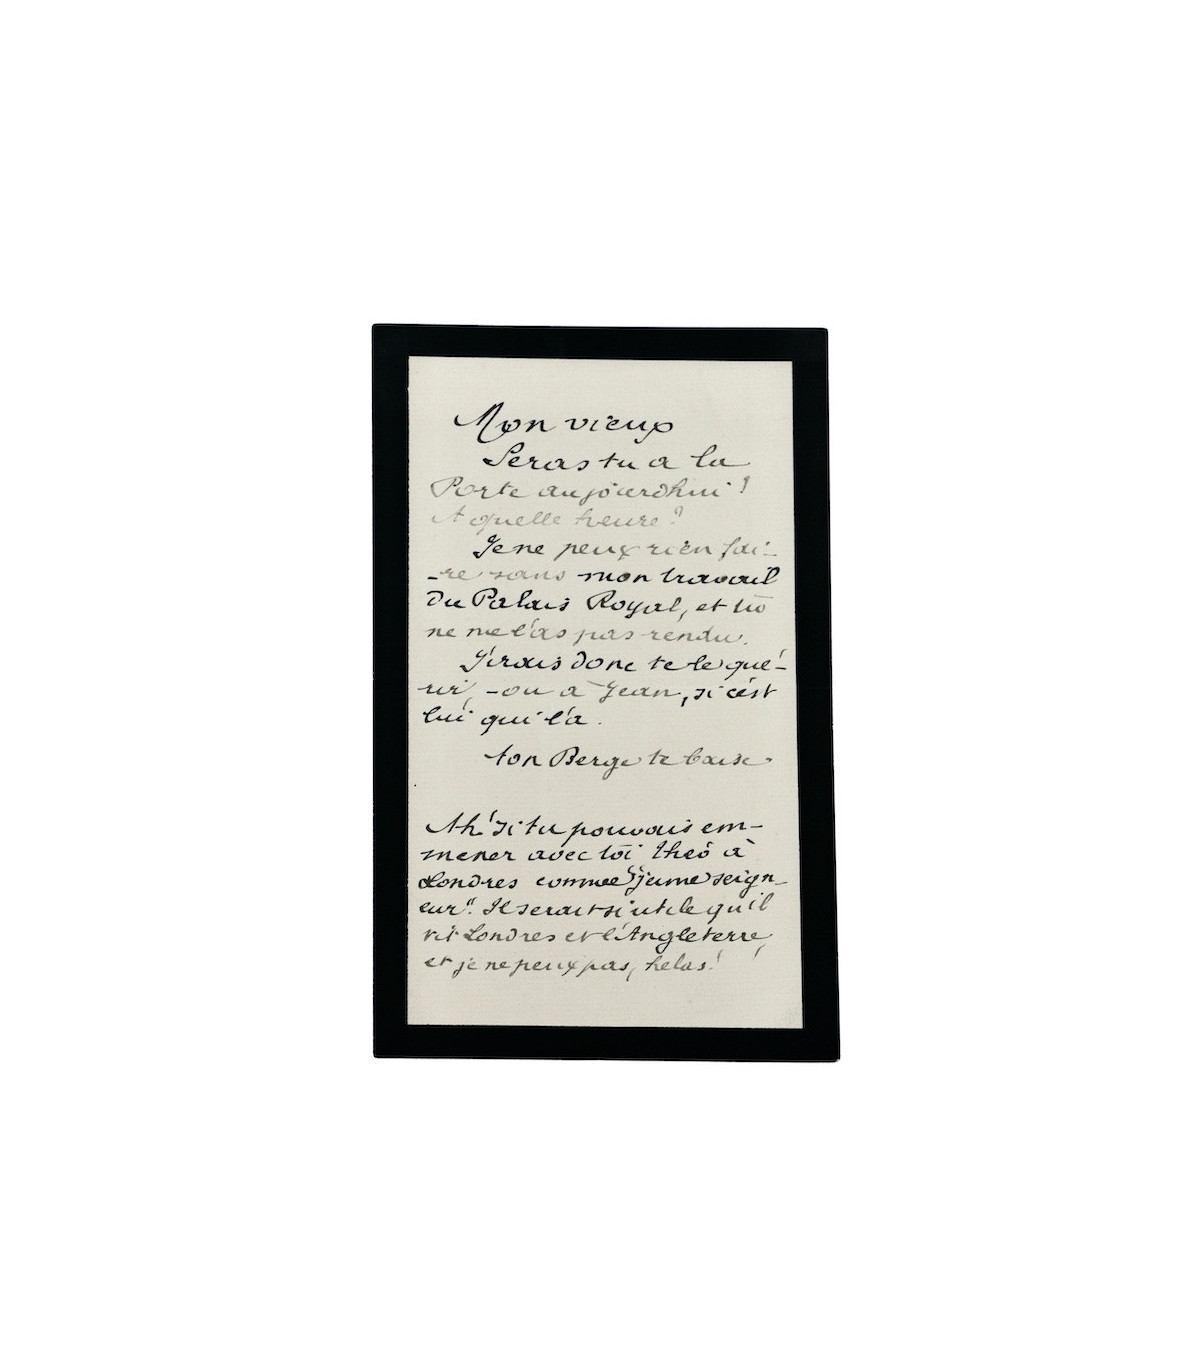 Mon vieux
Seras tu a la
Porte aujourdhui ?
A quelle heure ?
Je ne peux rien fai-
-re sans mon travail
du Palais Royal, et tu
ne me l'as pas rendu.
J'irais donc te le qué-
rir, -ou a Jean, si c'est
lui qui l'a.
ton Berge te baise
Ah! si tu pouvais em-
mener avec toi théo à
Londres comme "jeune seign-
eur". Il serait si utile qu'il
vit Londres et l'Angleterre,
et je ne peux pas, helas! !